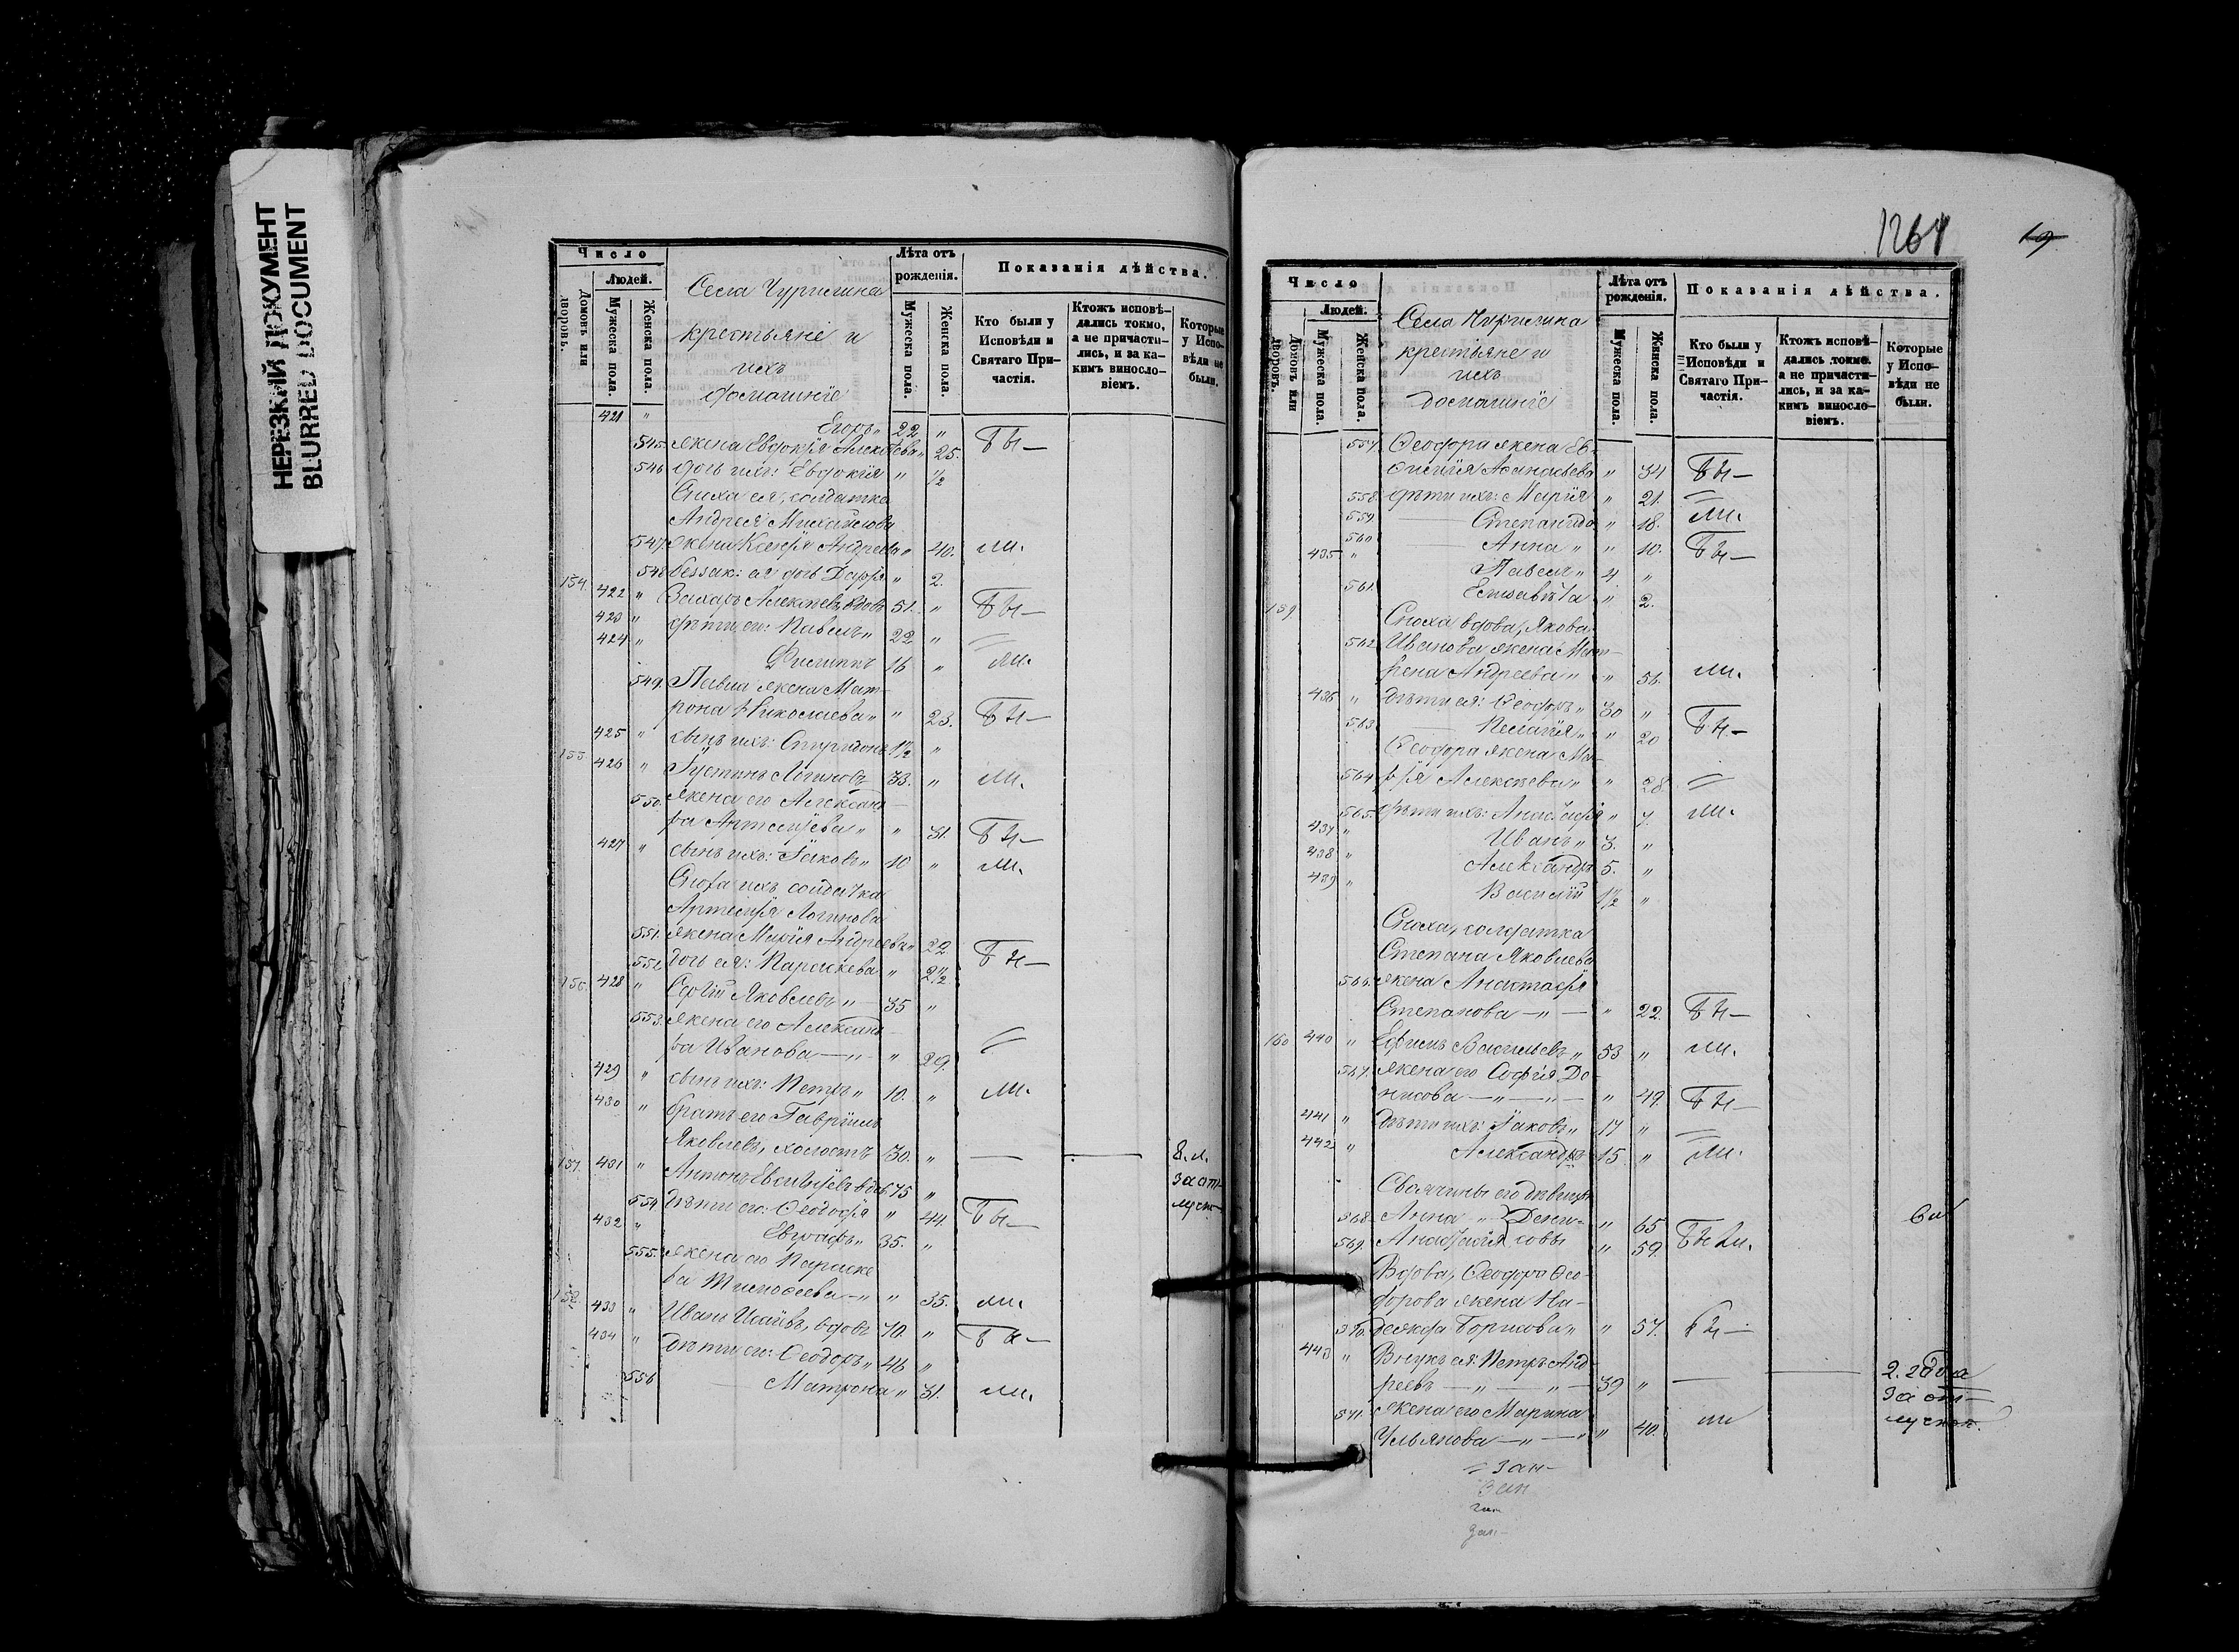 НЕРЕЗКИЙ ДОКУМЕНТ
BLURRED DOCUMENT
Число
Людей.
Домовъ или дворовъ.
Мужеска пола.
Женска пола.
Села Чуригина
крестьяне и
ихъ
домашніе
Лѣта отъ рожденія.
Мужеска пола.
Женска пола.
Показанія дѣйства.
Кто были у Исповѣди и Святаго Причастія.
Ктожъ исповѣдались токмо, а не причастились, и за какимъ винословіемъ.
Которые у Исповѣди не были.
421 " Егоръ " 22 "
545. жена Евдокія Алексѣева " 25. Бы—
546 дочь ихъ: Евдокія " 1/2
Сноха ея, солдатка
Андрея Михайлова
547. жена Ксенія Андреева " 40. ли.
548 беззак: ея дочь Дарья " 2.
154. 422 " Захаръ Алексѣевъ вдовъ 51. " Бы—
423 " дѣти его: Павелъ " 22 "
424 " Филиппъ 16 " ли.
549. Павла жена Мат-
рона Николаева " " 23. Бы—
425 " сынъ ихъ: Спиридонъ 1 1/2 "
155. 426 " Іустинъ Логиновъ 33. " ли.
550. жена его Александ-
ра Артемьева " " 31. Бы—
427 " сынъ ихъ: Іаковъ " 10 " ли.
Сноха ихъ солдатка
Артемія Логинова
551. жена Марія Андреева " 22 Бы—
552 дочь ея: Параскева " 2 1/2
156. 428 " Сергій Яковлевъ " 35 "
553. жена его Александ-
ра Иванова — " — " 29.
429 " сынъ ихъ: Петръ " 10. " ли.
430 " братъ его Гавріилъ
Яковлевъ, холостъ 30. " — — 8. л.
за от-
луч-
157. 431 " Антонъ Евсивіевъ вдов 75 "
554 дѣти его: Ѳеодосія " 44. Бы—
432 " Евграфъ " 35. "
555. жена его Параске
ва Тимоѳеева — " " 35. ли.
158. 433 " Иванъ Исаевъ, вдовъ 70. " Бы—
434 " дѣти его: Ѳеодоръ " 46 "
556 — Матрона " 31. ли.
1264
19
Число
Людей.
Домовъ или дворовъ.
Мужеска пола.
Женска пола.
Села Чуригина
крестьяне и
ихъ
домашніе
Лѣта отъ рожденія.
Мужеска пола.
Женска пола.
Показанія дѣйства.
Кто были у Исповѣди и Святаго Причастія.
Ктожъ исповѣдались токмо, а не причастились, и за какимъ винословіемъ.
Которые у Исповѣди не были.
557. Ѳеодора жена Ев-
фимія Аѳанасьева " 34 Бы—
558. дѣти ихъ: Марія " 21.
559. — Степанида " 18. ли.
560 — Анна " " 10. Бы—
435 " Павелъ " 4 "
561. Елисавѣта " 2.
159 Сноха вдова, Якова
562 Иванова жена Мат-
рена Андреева " " 56. ли.
436 " дѣти ея: Ѳеодоръ " 30 "
563 — Пелагія " " 20 Бы—
Ѳеодора жена Ма-
564 рія Алексѣева " " 28.
565. дѣти ихъ: Анастасія " 7. ли.
437 " Иванъ " 3. "
438 " Александръ 5. "
439 " Василій 1 1/2 "
Сноха, солдатка
Степана Яковлева
566. жена Анастасія
Степанова — " — " 22. Бы—
160 440 " Ефимъ Васильевъ " 53 " ли.
567. жена его Софія Де-
нисова — " — " — " 49. Бы—
441 " дѣти ихъ: Іаковъ " 17 "
442 " Александръ 15 " ли.
Своячины его дѣвицы
568. Анна " } Дени- " 65
569. Анастасія } совы " 59. Бы ли.
Вдова, Ѳеодора Ѳео-
дорова жена На-
570. дежда Борисова " " 57. Бы—
443 " Внукъ ея: Петръ Анд-
реевъ — " — " — 39 " — — 2. года
за от-
лучкою.
571. жена его Марина
Ульянова — " — " " 40. ли